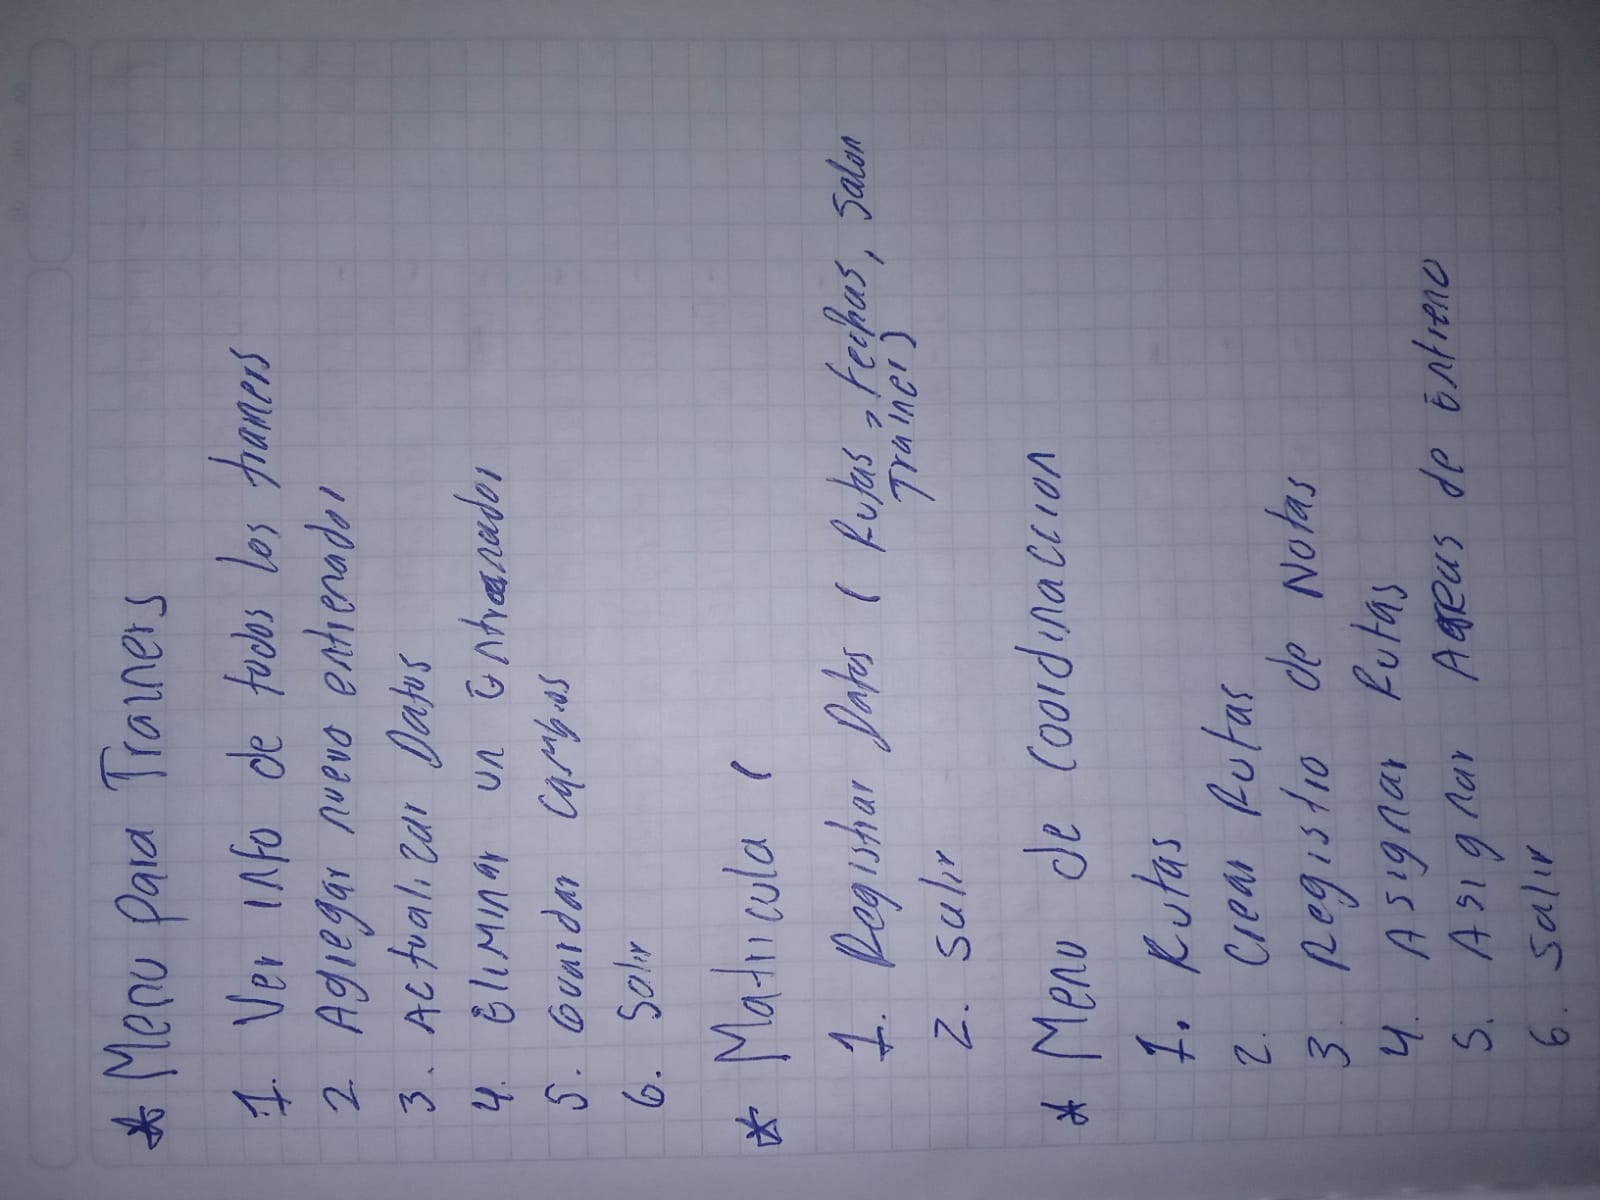 * Menu para Trainers
1. Ver info de todos los trainers
2 Agregar nuevo entrenador
3. Actualizar Datos
4. Eliminar un Entrenador
5. Guardar cambios
6. Salir
* Matricula (
1. Registrar Datos ( Rutas, Fechas, Salon
Trainer)
2. Salir
* Menu de Coordinaccion
1. Rutas
2. Crear Rutas
3. Registro de Notas
4. Asignar Rutas
5. Asignar Areas de Entreno
6. Salir